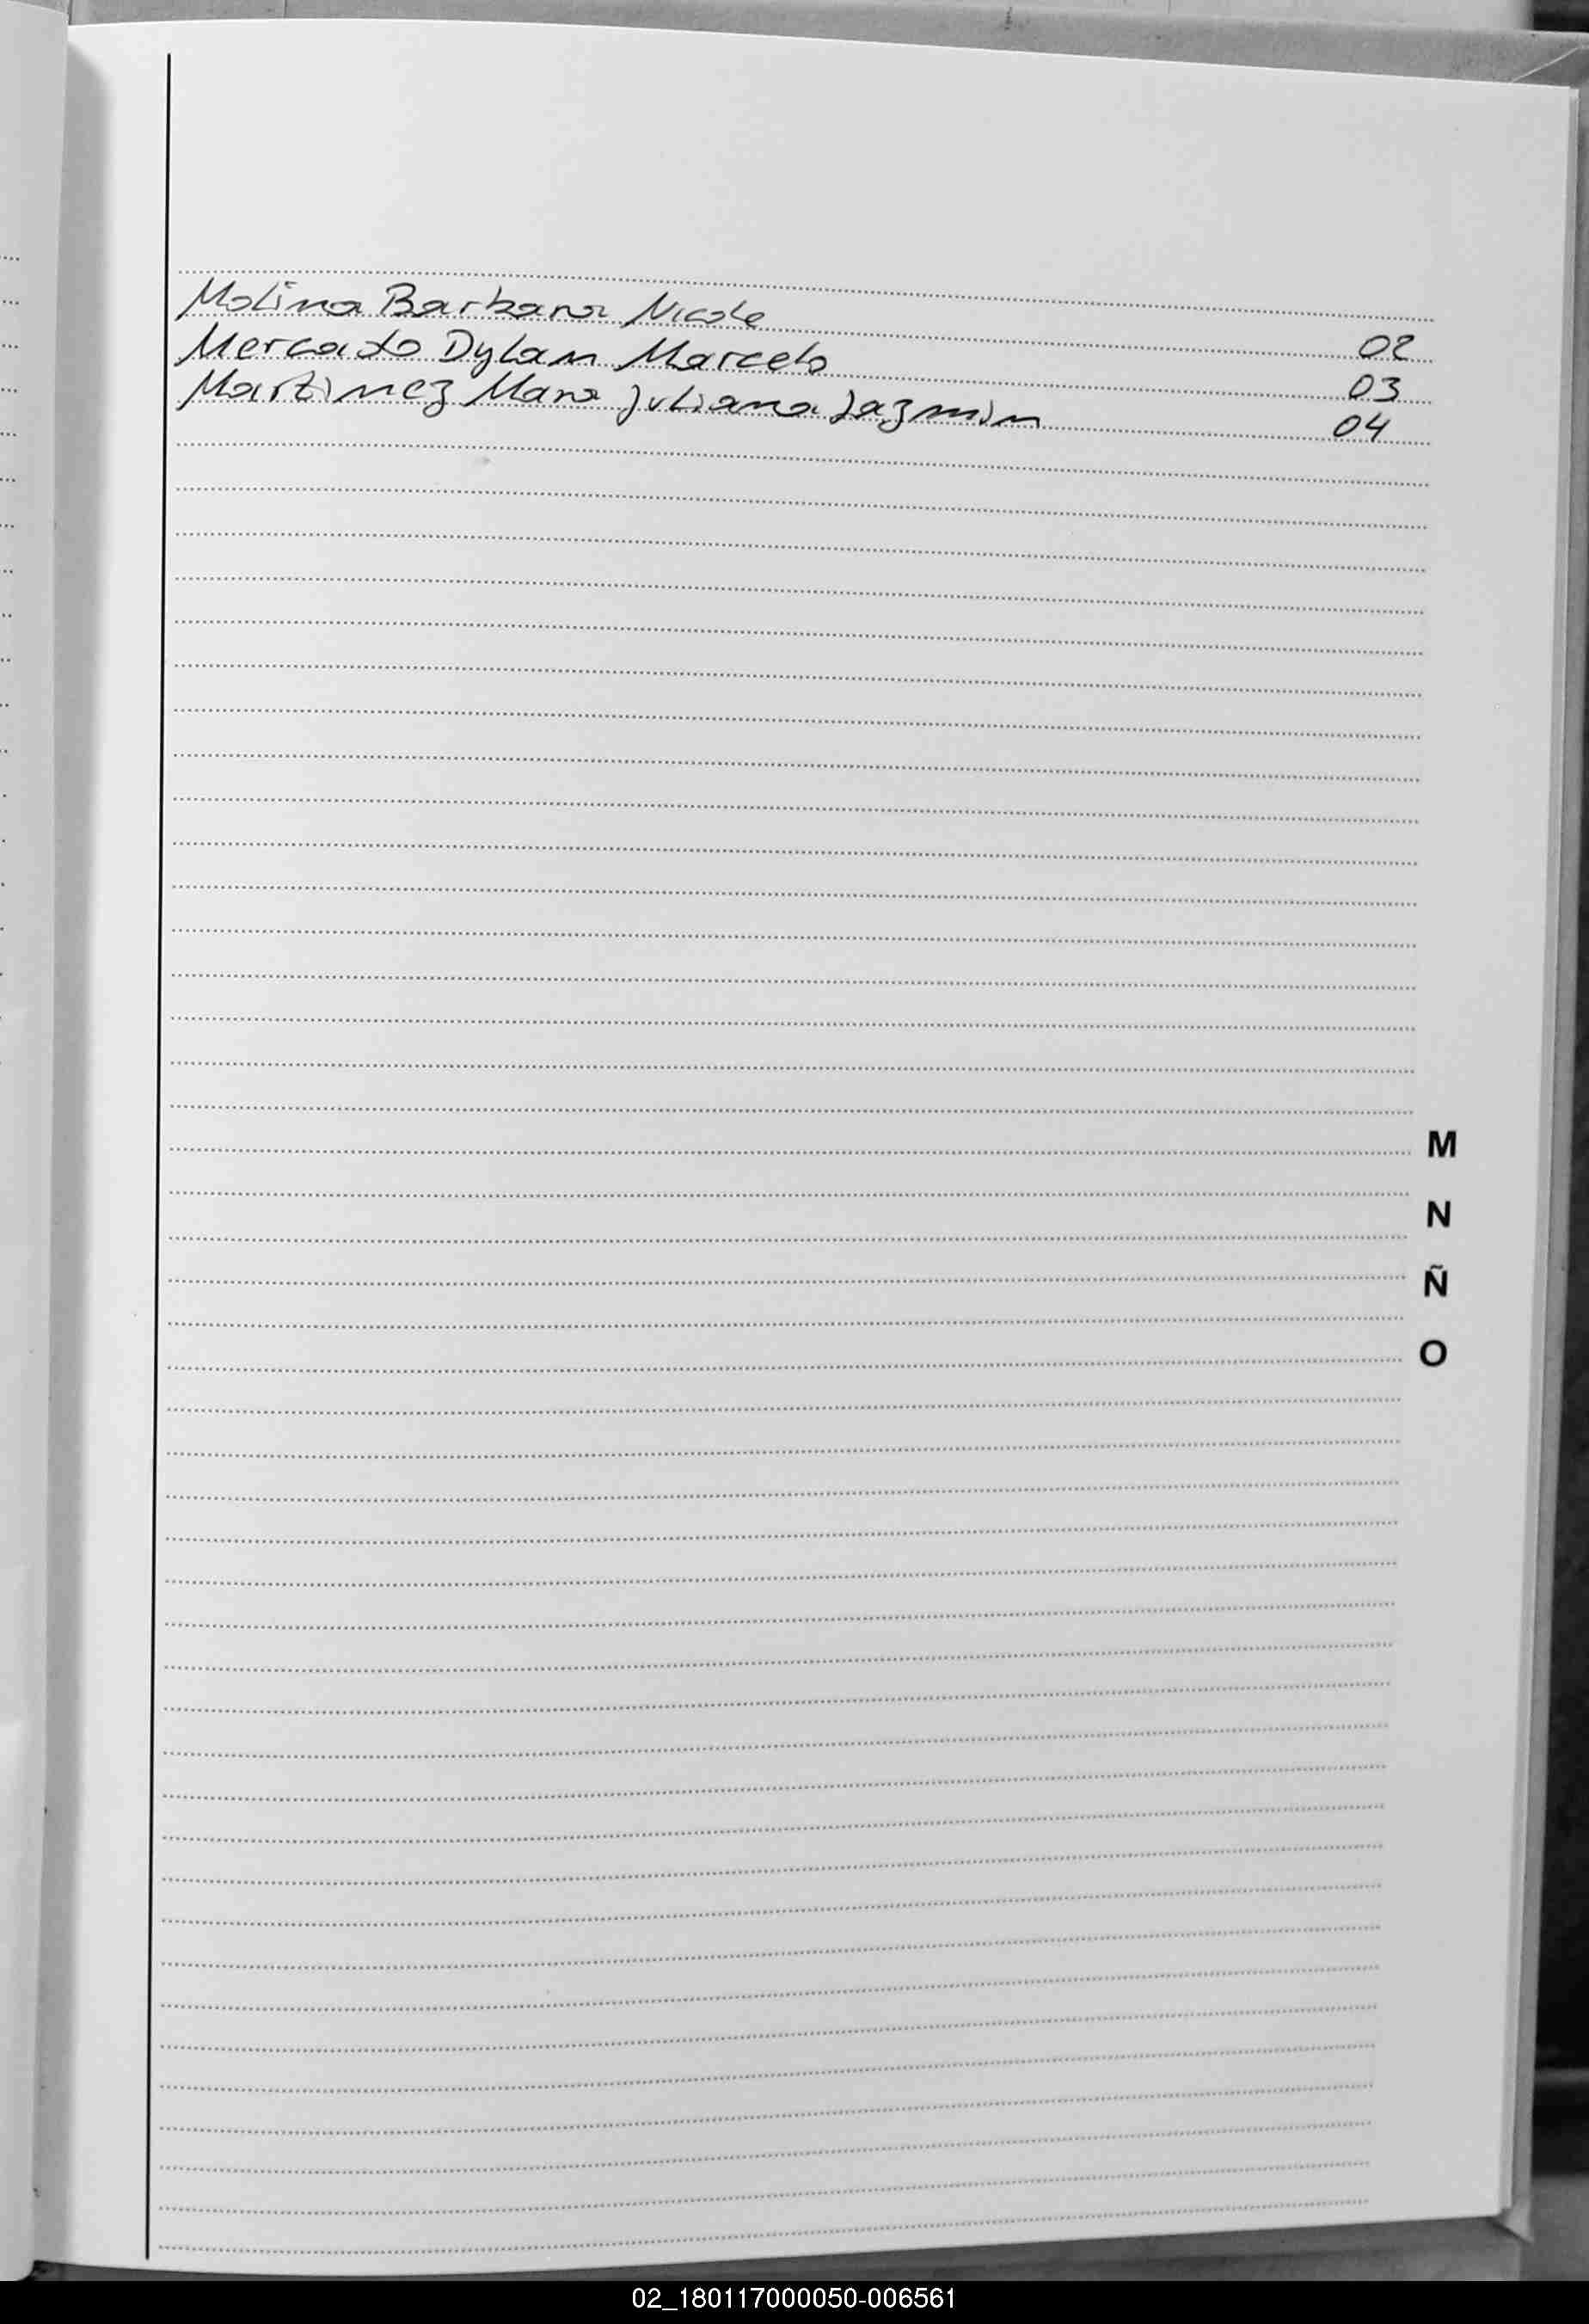 Molina Barbara Nicole 02
Mercado Dylan Marcelo 03
Martinez Mara Juliana Jazmin 04
M
N
Ñ
O
02_180117000050-006561